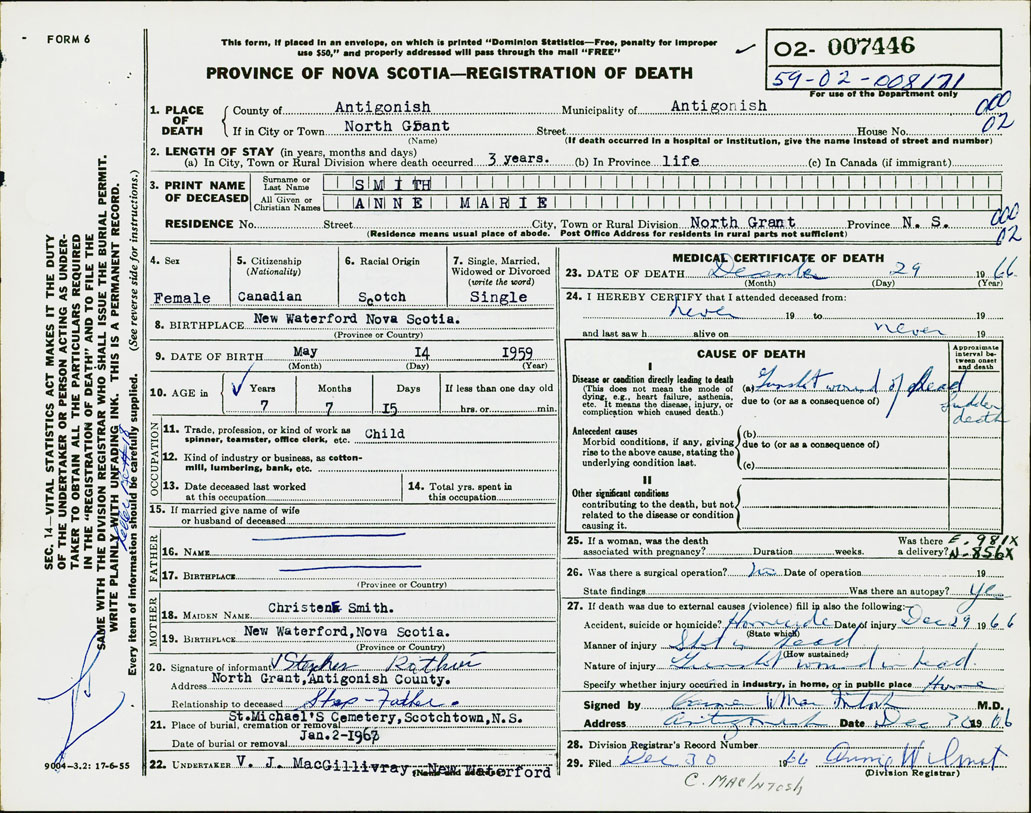 FORM 6
This form, if placed in an envelope, on which is printed "Dominion Statistics—Free, penalty for improper
use $50," and properly addressed will pass through the mail "FREE"
02- 007446
59-02-008171
For use of the Department only
PROVINCE OF NOVA SCOTIA—REGISTRATION OF DEATH
1. PLACE OF DEATH County of Antigonish Municipality of Antigonish 000
If in City or Town North Grant Street House No. 02
(Name) (If death occurred in a hospital or institution, give the name instead of street and number)
2. LENGTH OF STAY (in years, months and days)
(a) In City, Town or Rural Division where death occurred 3 years. (b) In Province life (c) In Canada (if immigrant)
3. PRINT NAME OF DECEASED Surname or Last Name SMITH
All Given or Christian Names ANNE MARIE
RESIDENCE No. Street City, Town or Rural Division North Grant Province N. S. 000
02
(Residence means usual place of abode. Post Office Address for residents in rural parts not sufficient)
4. Sex Female
5. Citizenship (Nationality) Canadian
6. Racial Origin Scotch
7. Single, Married, Widowed or Divorced (write the word) Single
8. BIRTHPLACE New Waterford Nova Scotia.
(Province or Country)
9. DATE OF BIRTH May 14 1959
(Month) (Day) (Year)
10. AGE in Years Months Days If less than one day old
7 7 15 hrs. or min.
OCCUPATION
11. Trade, profession, or kind of work as
spinner, teamster, office clerk, etc. Child
12. Kind of industry or business, as cotton-
mill, lumbering, bank, etc.
13. Date deceased last worked
at this occupation
14. Total yrs. spent in
this occupation
15. If married give name of wife
or husband of deceased
FATHER
16. NAME
17. BIRTHPLACE
(Province or Country)
MOTHER
18. MAIDEN NAME Christene Smith.
19. BIRTHPLACE New Waterford, Nova Scotia.
(Province or Country)
20. Signature of informant Stephen
Address North Grant, Antigonish County.
Relationship to deceased Step-Father.
21. Place of burial, cremation or removal St.Michael'S Cemetery, Scotchtown, N.S.
Date of burial or removal Jan.2-1967
22. UNDERTAKER V. J. MacGillivray New Waterford
(Name and address)
MEDICAL CERTIFICATE OF DEATH
23. DATE OF DEATH December 29 1966
(Month) (Day) (Year)
24. I HEREBY CERTIFY that I attended deceased from:
never 19 to 19
and last saw h alive on never 19
CAUSE OF DEATH
Approximate interval between onset and death
I
Disease or condition directly leading to death
(This does not mean the mode of
dying, e.g., heart failure, asthenia,
etc. It means the disease, injury, or
complication which caused death.)
(a) Gunshot wound of head
due to (or as a consequence of)
sudden
death
Antecedent causes
Morbid conditions, if any, giving
rise to the above cause, stating the
underlying condition last.
(b)
due to (or as a consequence of)
(c)
II
Other significant conditions
contributing to the death, but not
related to the disease or condition
causing it.
25. If a woman, was the death Was there E. 981X
associated with pregnancy? Duration weeks. a delivery? N-856X
26. Was there a surgical operation? no Date of operation 19
State findings Was there an autopsy? yes
27. If death was due to external causes (violence) fill in also the following:
Accident, suicide or homicide? Homicide Date of injury Dec 29 1966
(State which)
Manner of injury Shot in head
(How sustained)
Nature of injury Gunshot wound in head.
Specify whether injury occurred in industry, in home, or in public place Home
Signed by MacIntosh M.D.
Address Antigonish Date Dec 30 1966
28. Division Registrar's Record Number
29. Filed Dec 30 1966
(Division Registrar)
C. MACINTOSH
SEC. 14—VITAL STATISTICS ACT MAKES IT THE DUTY
OF THE UNDERTAKER OR PERSON ACTING AS UNDER-
TAKER TO OBTAIN ALL THE PARTICULARS REQUIRED
IN THE "REGISTRATION OF DEATH" AND TO FILE THE
SAME WITH THE DIVISION REGISTRAR WHO SHALL ISSUE THE BURIAL PERMIT.
WRITE PLAINLY WITH UNFADING INK. THIS IS A PERMANENT RECORD.
Every item of information should be carefully supplied. (See reverse side for instructions.)
9004-3.2: 17-6-55